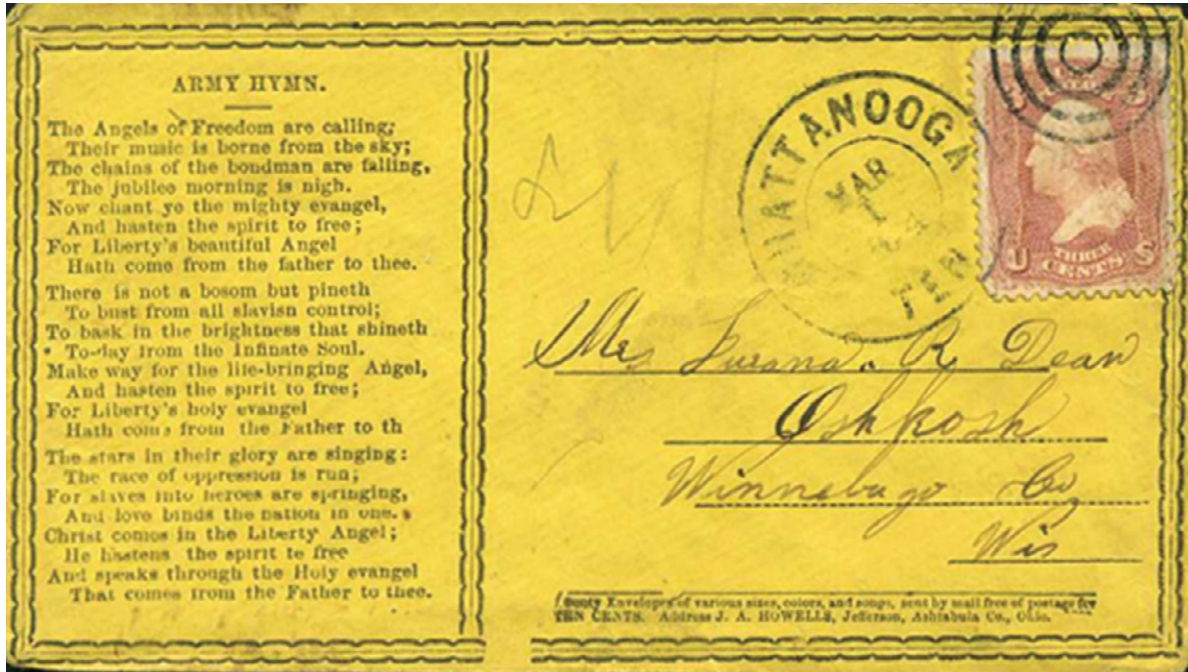 ARMY HYMN.
The Angels of Freedom are calling;
Their music is borne from the sky;
The chains of the bondman are falling,
The jubilee morning is nigh.
Now chant ye the mighty evangel,
And hasten the spirit to free;
For Liberty's beautiful Angel
Hath come from the father to thee.
There is not a bosom but pineth
To bust from all slavish control;
To bask in the brightness that shineth
To-day from the Infinate Soul.
Make way for the life-bringing Angel,
And hasten the spirit to free;
For Liberty's holy evangel
Hath come from the Father to th
The stars in their glory are singing:
The race of oppression is run;
For slaves into heroes are springing,
And love binds the nation in one.
Christ comes in the Liberty Angel;
He hastens the spirit te free
And speaks through the Holy evangel
That comes from the Father to thee.
CHATTANOOGA
MAR
TEN
U THREE CENTS S
Mrs R. Dean
Oshkosh
Winnebago Co
Wis
Envelopes of various sizes, colors, and songs, sent by mail free of postage for
TEN CENTS. Address J. A. HOWELLS, Jefferson, Ashtabula Co., Ohio.